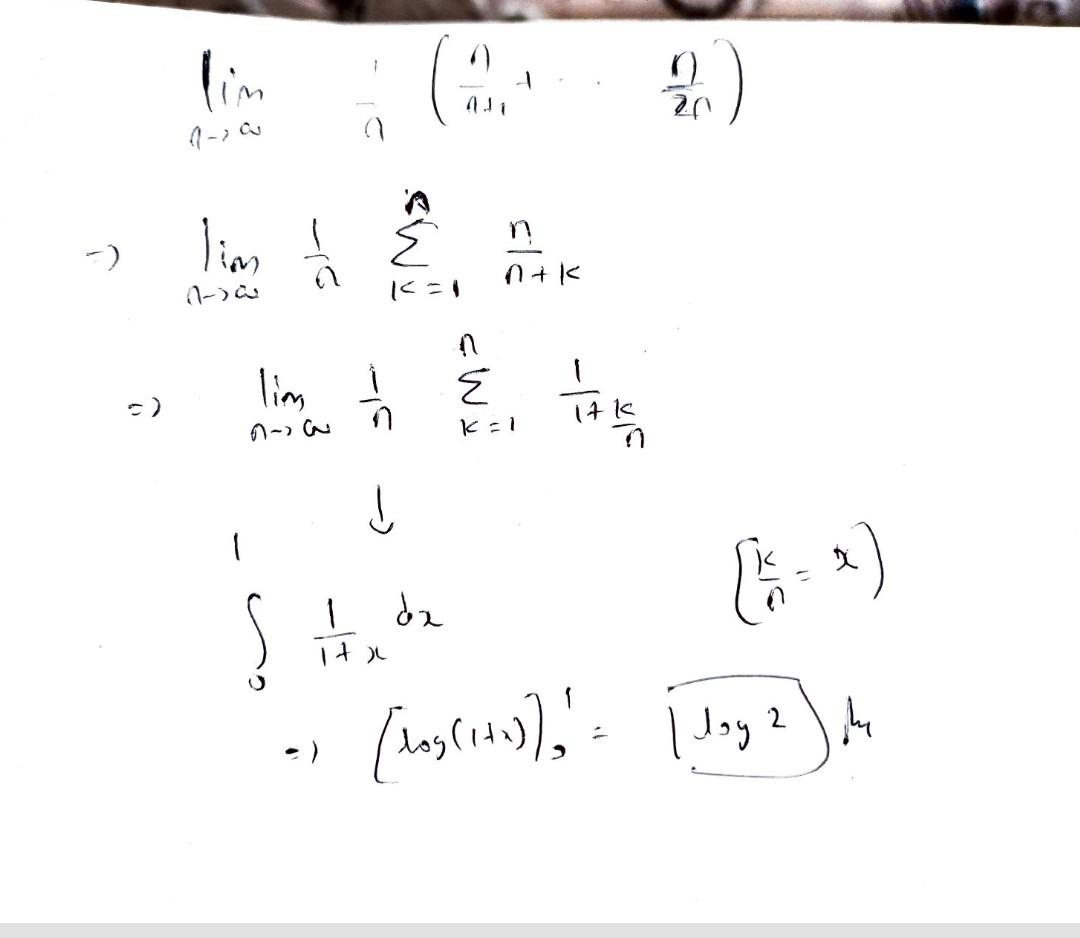 lim n→∞ 1/n ( n/n+1 + . . n/2n )
=> lim n→∞ 1/n Σ k=1 n n/n+k
=> lim n→∞ 1/n Σ k=1 n 1/1+k/n
↓
∫ 0 1 1/1+x dx [ k/n = x )
=> [log(1+x)] 0 1 = log 2